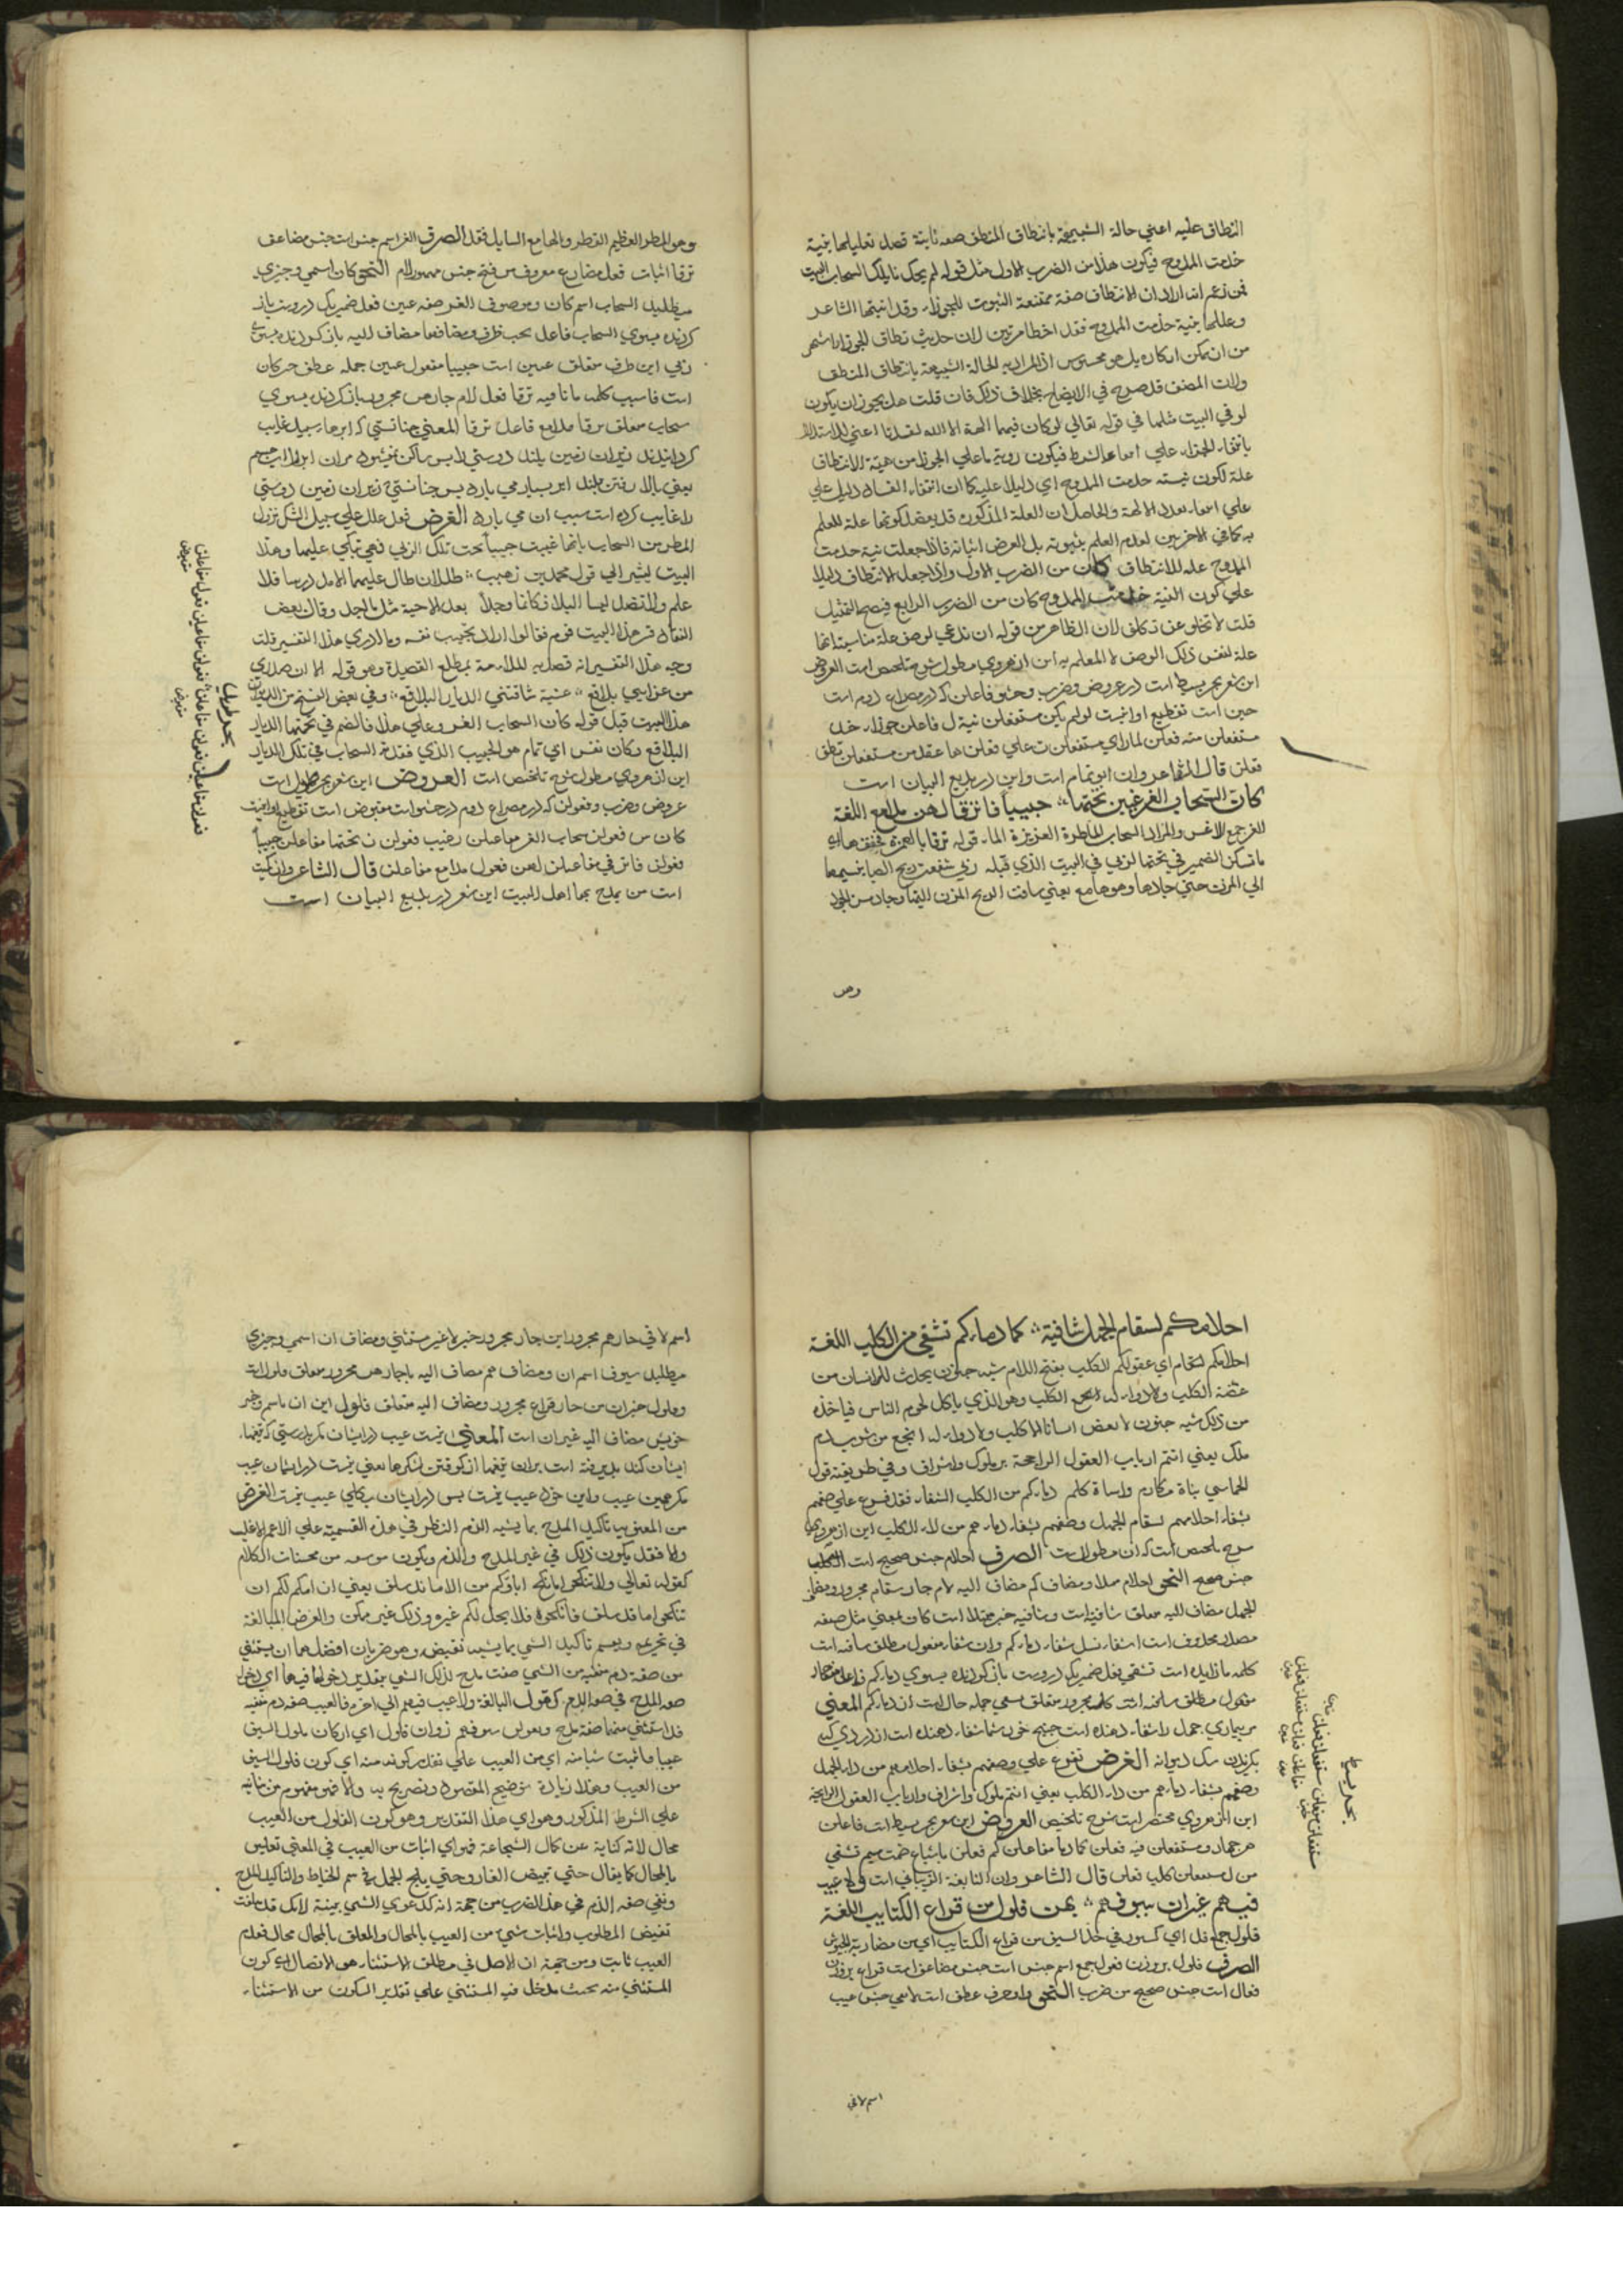 النطاق عليه اعني حالة الشبيهة بانتطاق المنطق صفة ثابتة قصد تعليلها بنية
خدمت الممدوح فيكون هذا من الضرب الاول مثل قوله لم يحك نايلك السحاب البيت
فمن زعم انه اراد ان الانتطاق صفة ممتنعة الثبوت للجوزاء وقد اثبتها الشاعر
وعللها بنية خدمت الممدوح فقد اخطا مرتين لان حديث نطاق الجوزا اشهر
من ان يمكن انكاره بل هو محسوس اذ المراد به الحالة الشبيهة بانتطاق المنطق
ولان المصنف قد صرح في الايضاح بخلاف ذلك فان قلت هل يجوز ان يكون
لو في البيت مثلها في قوله تعالي لو كان فيهما الهة الا الله لفسدتا اعني الاستدلال
بانتفاء الجزاء علي الشرط فيكون روية ما علي الجوزا من هيئة الانتطاق
علة لكون نيته خدمت الممدوح اي دليلا عليه كما ان انتفاء الفساد دليل علي
علي تعدد الالهة والحاصل ان العلة المذكورة قد يقصد كونها علة للعلم
به كما في الاخرين لعدم العلم بثبوته بل الغرض اثباته فاذا جعلت نية خدمت
الممدوح علة للانتطاق كان من الضرب الاول واذا جعل الانتطاق دليلا
علي كون النية خدمت الممدوح كان من الضرب الرابع فيصح التمثيل
قلت لا تخلو عن تكلف لان الظاهر من قوله ان تدعي لوصف علة مناسبة انها
علة لنفس ذلك الوصف لا للعلم به اين از هروي مطول شرح تلخيص است العروض
اين شعر بحر بسيط است در عروض و ضرب و حشو فاعلن كه در مصراع دوم است
خبن است تقطيع او اينست لو لم يكن مستفعلن نية ل فاعلن جوزاء خد
مستفعلن مته فعلن لما راي مستفعلن ت علي فعلن ها عقد من مستفعلن نطق
فعلن قال الشاعر وان ابو تمام است واين در بديع البيان است
كان السحاب الغر غيبن تحتها حبيبا فما ترقا لهن مدامع اللغة
الغر جمع الاغر والمراد السحاب الماطرة الغزيرة الماء قوله ترقا بالهمزة فخففها اي
ما تسكن الضمير في تحتها لربي في البيت الذي قبله ربي شفعت ريح الصبا بنسيمها
الي المزن حتي جادها وهو هامع يعني ساقت الريح المزن اليها وجاد من الجود
وهو
وهو المطر العظيم القطر والهامع السايل فقد الصرف الغر اسم جنس است جنس مضاعف
ترقا اثبات فعل مضارع معروف من فتح جنس مهموز لام النحو كان اسمي وخبري
ميطلبد السحاب اسم كان وموصوف الغر صفه غيبن فعل ضمير يكي درويست باز
كردنده بسوي السحاب فاعل تحت ظرف ومضاف ها مضاف اليه باز كردنده بسوي
ربي اين ظرف متعلق غيبن است حبيبا مفعول غيبن جمله عطف خبر كان
است فا سبب كلمه ما نافيه ترقا فعل لام جار هن مجرور باز كردنده بسوي
سحاب متعلق ترقا مدامع فاعل ترقا المعني چنانستي كه ابرها سپيد غايب
كردانيدند زيران زمين بلند دوستي را پس ساكن نميشود مران ابرها را چشم
يعني بالا رفتن بلند ابر بسيار مي بارد پس چنانستي زيران زمين دوستي
را غايب كرده است سبب ان مي بارد الغرض فعل علل علي سبيل الشك نزول
المطر من السحاب بانها غيبت حبيبا تحت تلك الربي فهي تبكي عليها وهذا
البيت يشير الي قول محمد بن زهيب طللان طال عليهما الامد درسا فلا
علم ولا نضد لبسا البلا فكانما وجدا بعد الاحبة مثل ما اجد وقال بعض
النقاد فسر هذا البيت قوم فقالوا اراد بحبيب نفسه وما ادري هذا التفسير قلت
وجه هذا التفسير انه قصد به الملايمة بمطلع القصيدة وهو قوله الا ان صدري
من عزايي بلاقع عشية شاقتني الديار البلاقع وفي بعض النسخ من الديوان
هذا البيت قبل قوله كان السحاب الغر وعلي هذا فالضم في تحتها الديار
البلاقع وكان نفس ابي تمام هو الحبيب الذي فقدته السحاب في تلك الديار
اين از هروي مطول شرح تلخيص است العروض اين شعر بحر طويل است
عروض وضرب وفعولن كه در مصراع دوم در حشو است مقبوض است تقطيع او اينست
كان س فعولن سحاب الغر مفاعيلن رغيب فعولن ن تحتها مفاعلن حبيبا
فعولن فما تر في مفاعيلن لهن فعول مدامع مفاعلن قال الشاعر وان كميت
است من يمدح بها اهل البيت اين شعر در بديع البيان است
بحر طويل
فعولن مفاعيلن فعولن مفاعلن فعولن مفاعيلن فعول مفاعلن
مقبوض مقبوض
احلامكم لسقام الجهل شافية كما دماؤكم تشفي من الكلب اللغة
احلامكم لسقام اي عقولكم الكلب بفتح اللام شبه جنون يحدث للانسان من
عضة الكلب ولا دواء له انجع الكلب وهو الذي ياكل لحوم الناس فياخذه
من ذلك شبه جنون لا يعض انسانا الا كلب ولا دواء له انجع من شرب دم
ملك يعني انتم ارباب العقول الراجحة بر ملوك واشراف وفي طريقته قول
الحماسي بناة مكارم واساة كلم دماءكم من الكلب الشفاء فقد فرع علي وصفهم
بشفاء احلامهم لسقام الجهل وصفهم بشفاء دمائهم من داء الكلب اين از هروي
شرح تلخيص است كه ان مطول است الصرف احلام جنس صحيح است الكلب
جنس صحيح النحو احلام مبتدا ومضاف كم مضاف اليه لام جار سقام مجرور ومضاف
الجهل مضاف اليه متعلق شافية است وشافيه خبر مبتدا است كان بمعني مثل صفه
مصدر محذوف است اشفاء مثل شفاء دماءكم وان شفاء مفعول مطلق شافيه است
كلمه ما زايده است تشفي فعل ضمير يكي درويست باز كردنده بسوي دماءكم فاعل
مفعول مطلق شافيه است كلب مجرور متعلق تشفي جمله حال است از دماءكم المعني
مر بيماري جهل را شفاء دهنده است چنانچه خون شما شفاء دهنده است از درد كسي
كزيدن سك ديوانه الغرض تفرع علي وصفهم بشفاء احلامهم من داء الجهل
وصفهم بشفاء دمائهم من داء الكلب يعني انتم ملوك واشراف وارباب العقول الراجحة
اين از هروي مختصر است شرح تلخيص العروض اين شعر بحر بسيط است فاعلن
هر چهار ومستفعلن فيه فعلن كما دما مفاعلن كم فعلن باشباع ضمت ميم تشفي
من ل مستفعلن كلب فعلن قال الشاعر وان النابغة الذبياني است ولا عيب
فيهم غير ان سيوفهم بهن فلول من قراع الكتايب اللغة
فلول جمع فل اي كسور في حد السيف من قراع الكتايب اي من مضاربة الجيوش
الصرف فلول بر وزن فعول جمع اسم جنس است جنس مضاعف است قراع بر وزن
فعال است جنس صحيح من ضرب النحو واو حرف عطف است لا نفي جنس عيب
اسم لا في
بحر بسيط
مستفعلن فعلن مستفعلن فعلن
مفاعلن فعلن مستفعلن فعلن
خبن خبن
اسم لا في جار هم مجرور اين جار مجرور خبر لا غير مستثني ومضاف ان اسمي وخبري
ميطلبد سيوف اسم ان ومضاف هم مضاف اليه با جار هن مجرور متعلق فلول است
وفلول خبر ان من جار قراع مجرور ومضاف اليه متعلق فلول اين ان باسم وخبر
خويش مضاف اليه غير ان است المعني نيست عيب در ايشان مكر بدرستي كه تيغهاء
ايشان كند پذيرفته است بران تيغها از كوفتن لشكرها يعني نيست در ايشان عيب
مكر همين عيب واين خود عيب نيست پس در ايشان بكلي عيب نيست الغرض
من المعنويه تاكيد المدح بما يشبه الذم النظر في هذه القسمية علي الاعم الاغلب
والا فقد يكون ذلك في غير المدح والذم ويكون من محسنات الكلام
كقوله تعالي ولا تنكحوا ما نكح اباؤكم من الا ما قد سلف يعني ان امكنكم ان
تنكحوا ما قد سلف فانكحوه فلا يحل لكم غيره وذلك غير ممكن والغرض المبالغة
في تحريمه ويسمي تاكيد الشي بما يشبه نقيضه وهو ضربان افضلهما ان يستثني
من صفة ذم منفية من الشي صفت مدح لذلك الشي بتقدير دخولها فيها اي دخول
صفه المدح في صفه الذم كقول النابغة ولا عيب فيهم الي اخره فالعيب صفه ذم منفيه
قد استثني منها صفة مدح وهو ان سيوفهم ذوات فلول اي ان كان فلول السيف
عيبا فاثبت شيئا منه اي من العيب علي تقدير كونه منه اي كون فلول السيف
من العيب وهذا زيادة توضيح المقصود وتصريح به والا فهو مفهوم من بنائه
علي الشرط المذكور وهو اي هذا التقدير وهو كون الفلول من العيب
محال لانه كناية عن كمال الشجاعة فهو اي اثبات من العيب في المعني تعليق
بالمحال كما يقال حتي يبيض القار وحتي يلج الجمل في سم الخياط والتاكيد للمدح
ونفي صفه الذم في هذا الضرب من جهة انه كدعوي الشي ببينة لانك قد علقت
نقيض المطلوب واثبات شيء من العيب بالمحال والمعلق بالمحال محال فعدم
العيب ثابت ومن جهة ان الاصل في مطلق الاستثناء هو الاتصال اي كون
المستثني منه بحيث يدخل فيه المستثني علي تقدير السكوت من الاستثناء